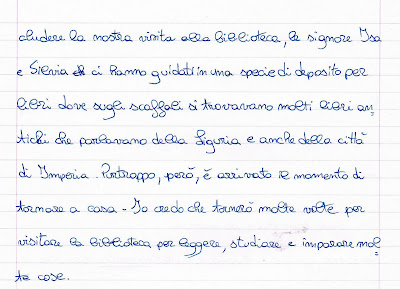 cludere la nostra visita alla biblioteca, le signore Isa
e Silvia ci hanno guidati in una specie di deposito per
libri dove sugli scaffali si trovavano molti libri an-
tichi che parlavano della Liguria e anche della città
di Imperia. Purtroppo, però, è arrivato il momento di
tornare a casa - Io credo che tornerò molte volte per
visitare la biblioteca per leggere, studiare e imparare mol=
te cose.